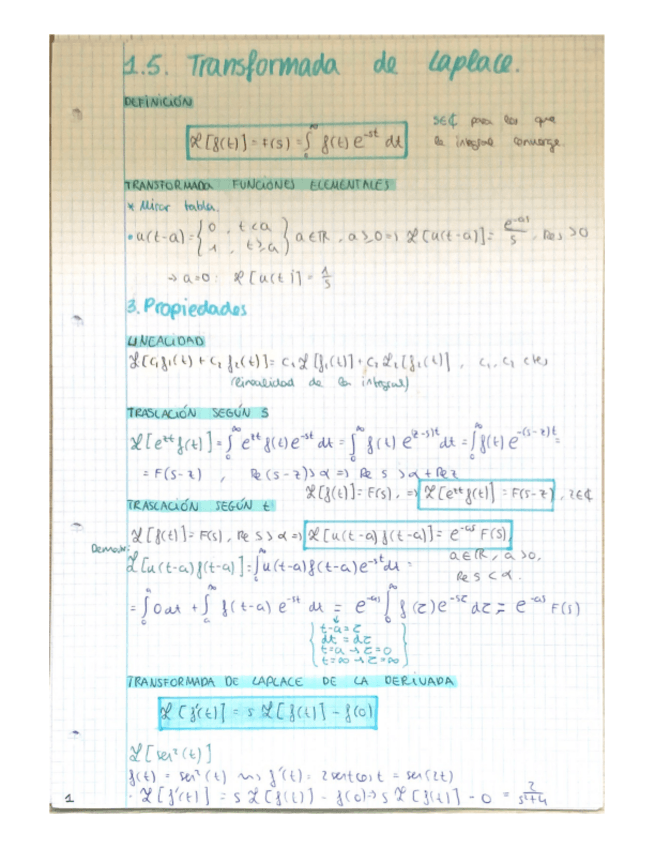 1.5. Transformada de Laplace.
DEFINICIÓN
ℒ[f(t)] = F(s) = ∫₀^∞ f(t) e^{-st} dt
s∈ℂ para los que
la integral converge.
TRANSFORMADA FUNCIONES ELEMENTALES
* Mirar tabla.
• u(t-a) = { 0 , t<a ; 1 , t≥a } a∈ℝ, a≥0 => ℒ[u(t-a)] = e^{-as}/s , Re s >0
→ a=0: ℒ[u(t)] = 1/s
3. Propiedades
LINEALIDAD
ℒ[c₁f₁(t) + c₂f₂(t)] = c₁ℒ[f₁(t)] + c₂ℒ[f₂(t)] , c₁, c₂ ctes
(linealidad de la integral)
TRASLACIÓN SEGÚN S
ℒ[e^{zt} f(t)] = ∫₀^∞ e^{zt} f(t) e^{-st} dt = ∫₀^∞ f(t) e^{(z-s)t} dt = ∫₀^∞ f(t) e^{-(s-z)t} =
= F(s-z) , Re(s-z)>α => Re s > α + Re z
ℒ[f(t)] = F(s), => ℒ[e^{zt} f(t)] = F(s-z) , z∈ℂ
TRASLACIÓN SEGÚN t
ℒ[f(t)] = F(s), Re s > α => ℒ[u(t-a) f(t-a)] = e^{-as} F(s),
a∈ℝ, a>0,
Re s < α.
Demostr:
ℒ[u(t-a) f(t-a)] = ∫₀^∞ u(t-a) f(t-a) e^{-st} dt =
= ∫₀^a 0 dt + ∫ₐ^∞ f(t-a) e^{-st} dt = e^{-as} ∫₀^∞ f(τ) e^{-sτ} dτ = e^{-as} F(s)
t-a = τ
dt = dτ
t=a → τ=0
t=∞ → τ=∞
TRANSFORMADA DE LAPLACE DE LA DERIVADA
ℒ[f'(t)] = s ℒ[f(t)] - f(0)
ℒ[sen²(t)]
f(t) = sen²(t) ⇝ f'(t) = 2sent cos t = sen(2t)
· ℒ[f'(t)] = s ℒ[f(t)] - f(0) → s ℒ[f(t)] - 0 = 2/(s²+4)
1